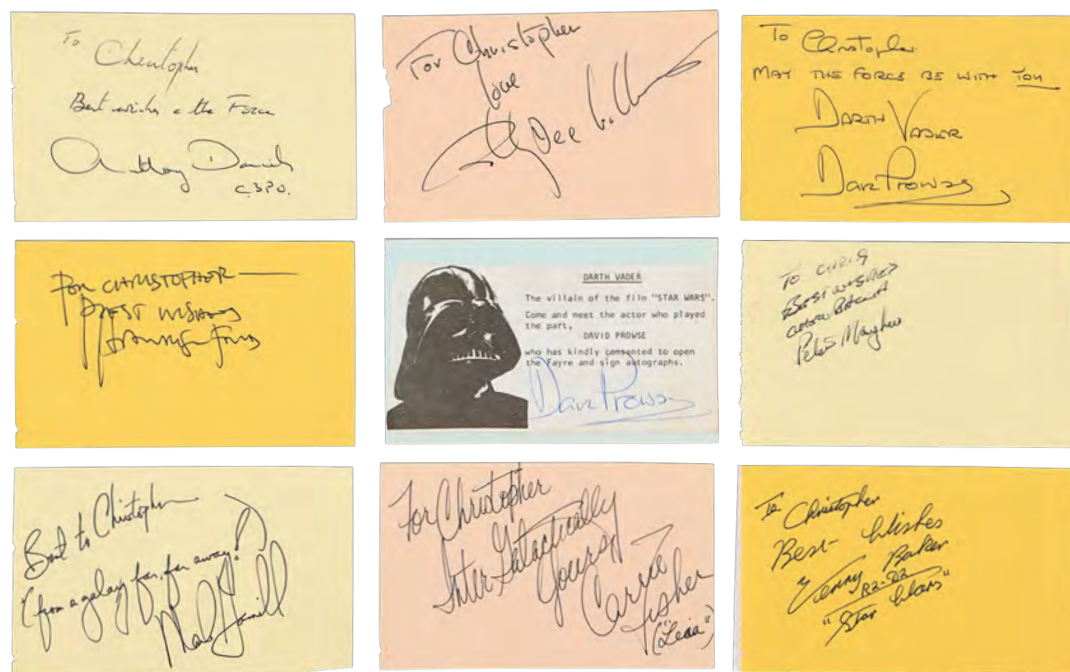 To
Christopher
Best wishes & the Force
Anthony Daniels
C3PO.
For Christopher
love
Billy Dee Williams
To Christopher.
MAY THE FORCE BE WITH YOU
DARTH VADER
Dave Prowse
FOR CHRISTOPHER —
BEST WISHES
DARTH VADER
The villain of the film "STAR WARS".
Come and meet the actor who played
the part,
DAVID PROWSE
who has kindly consented to open
the Fayre and sign autographs.
Dave Prowse
TO CHRIS
BEST WISHES
Peter Mayhew
Best to Christopher
(from a galaxy far, far away!)
Mark Hamill
For Christopher
Inter Galactically
Yours,
Carrie
Fisher
("Leia")
To Christopher
Best Wishes
Kenny Baker
"R2-D2
"Star Wars"